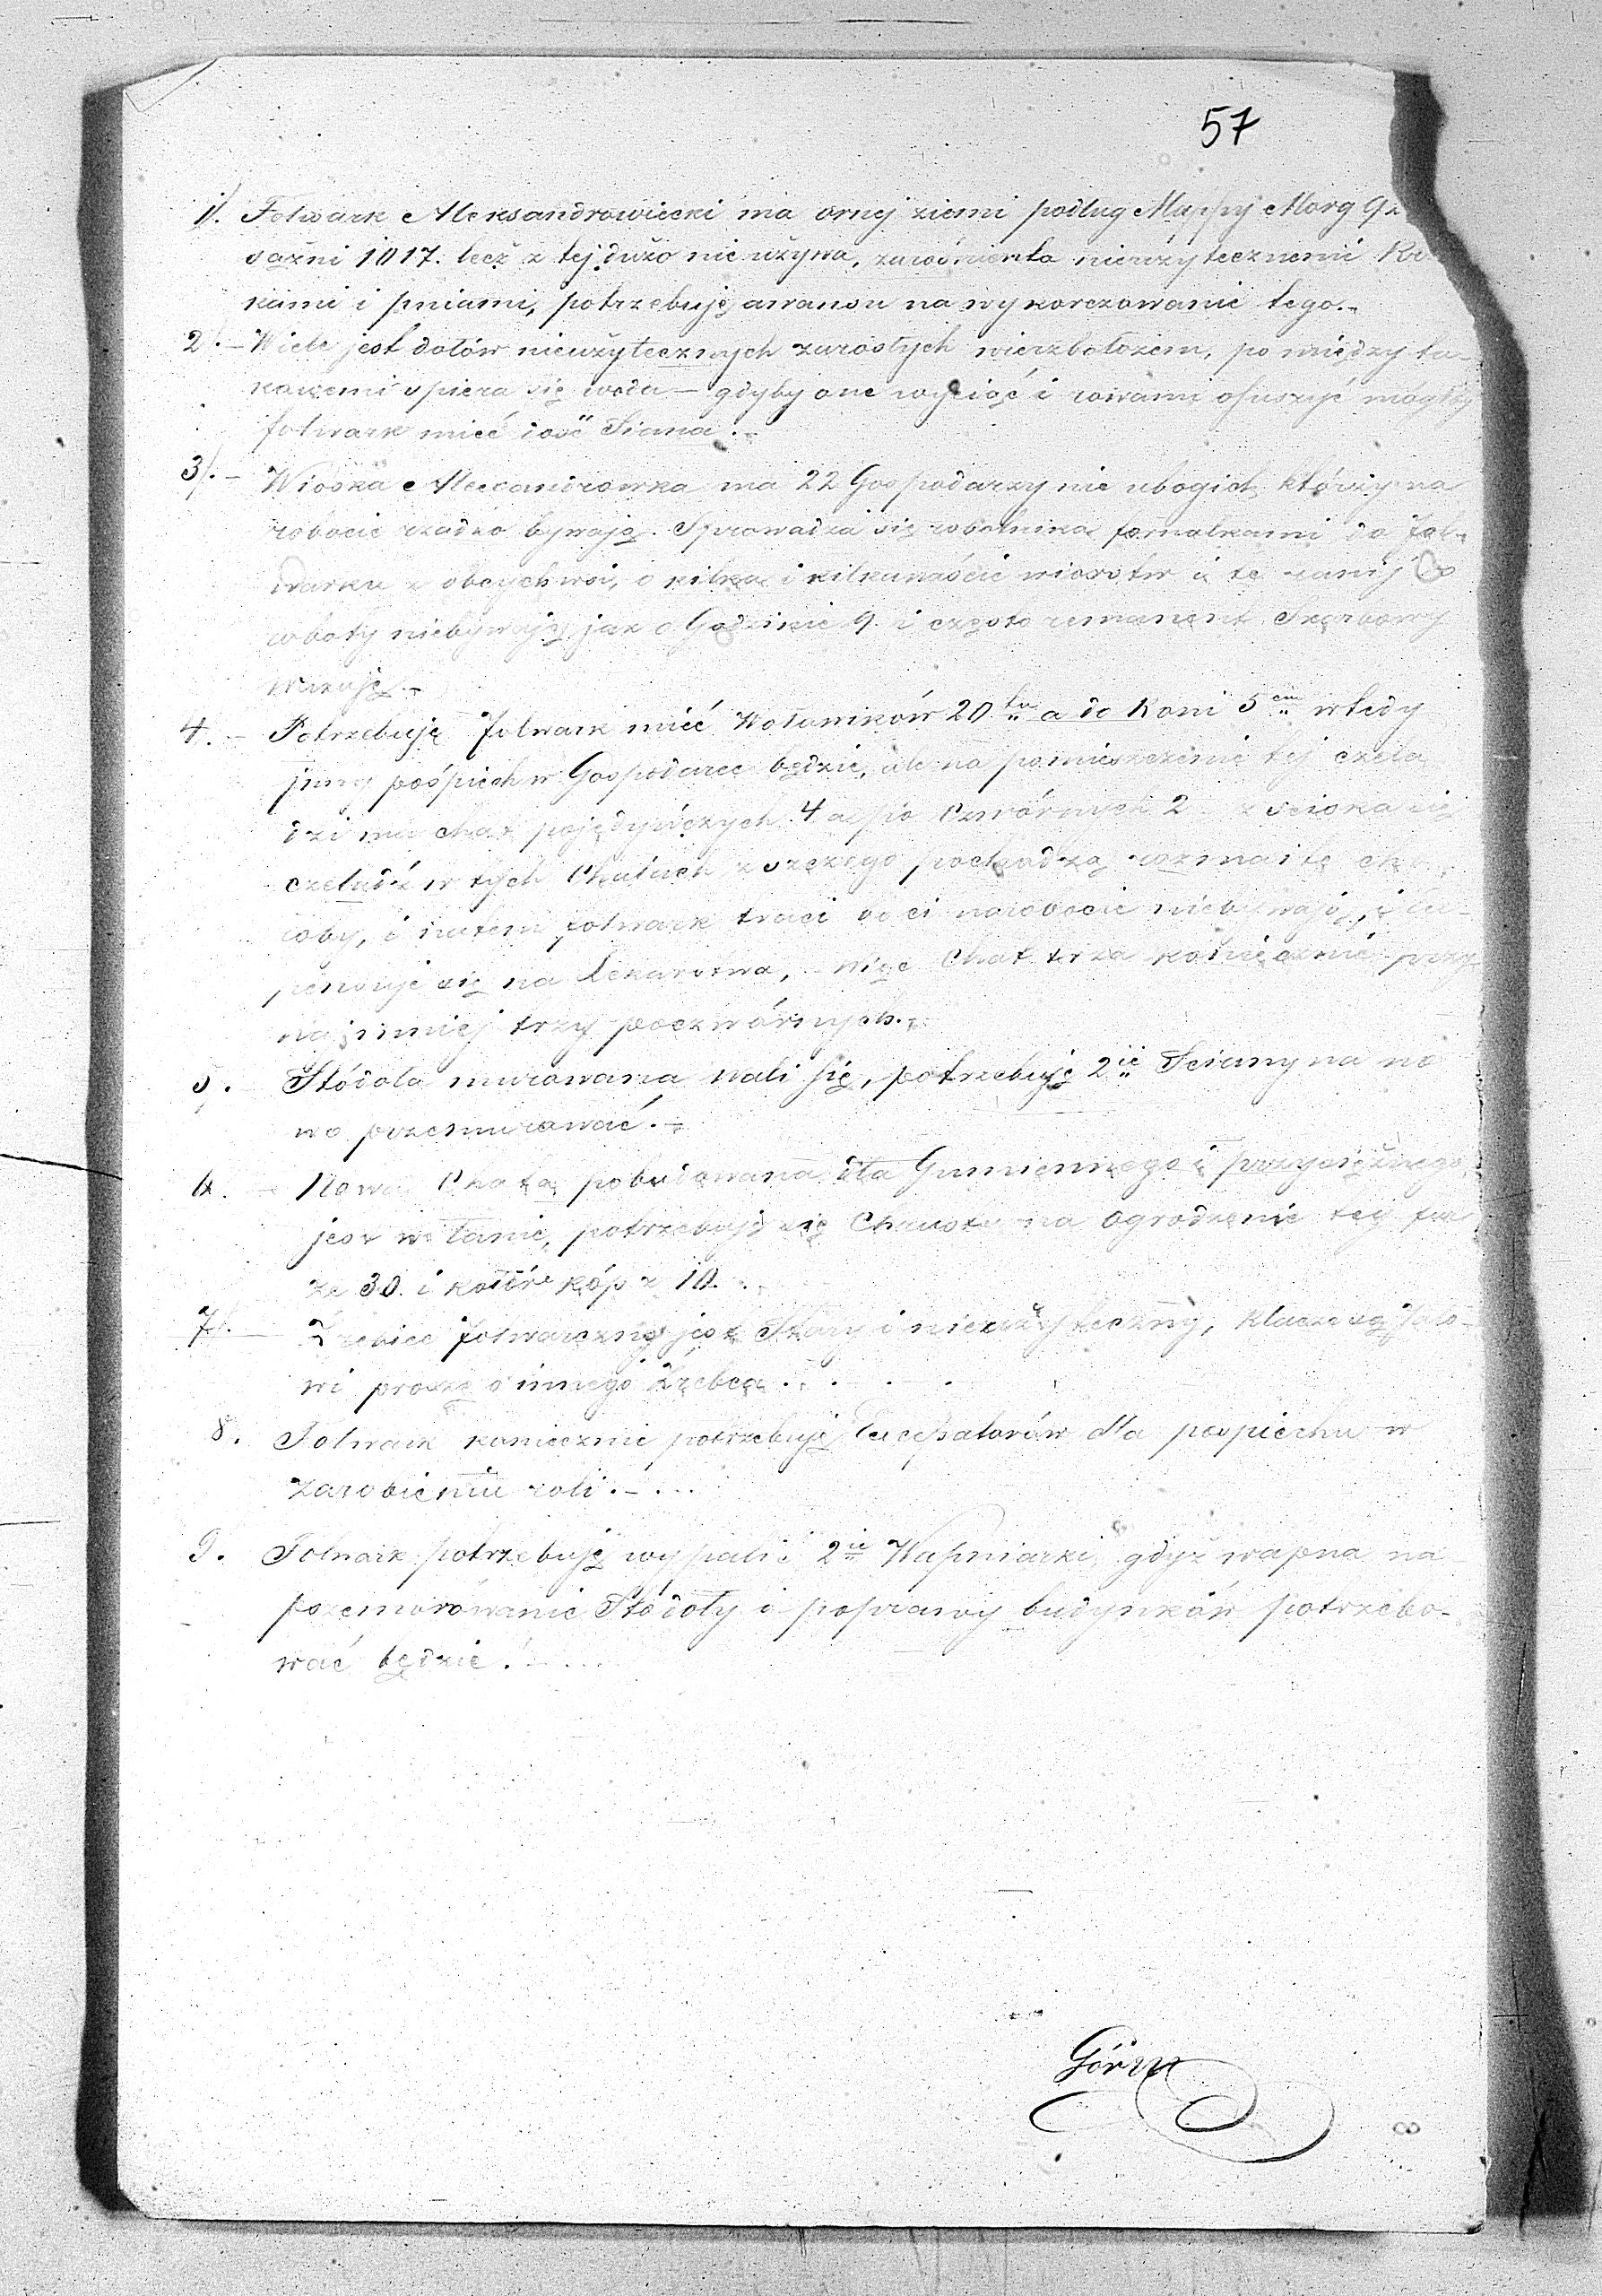 57
1). Folwark Aleksandrowiecki ma ornej ziemi podług Mappy Morg
sażni 1017. lecz z tej dużo nie używa, nieużytecznemi
kami i pniami, potrzebuję awansu na wykorczowanie tego.-
2). - Wiele jest dołów nieużytecznych zarosłych wierzbołozem, po między ta-
kowemi opiera się woda - gdyby one wyciąć i rowami osuszyć mogłby
folwark mieć dość Siana.-
3). - Wioska Alexandrowka ma 22 Gospodarzy nie ubogich, którzy na
robocie rzadko bywają. Sprowadza się robotnika fornalkami do Fol-
warku z obcych wsi, o kilka i kilkanaście wiorstw i te ranij do
roboty niebywają jak o Godzinie 9. i często remanent Skarbowy
4. - Potrzebuję folwark mieć Wołowików 20 tu a do Koni 5 ciu wtedy
inny pośpiech w Gospodarce będzie, ale na pomieszczenie tej czela
dzi ma chat pojedyńczych 4 a po Czwórnych 2 - ściska się
czeladź w tych Chatach z szczego pochodzą rozmaite cho-
roby, i zatem folwark traci bo ci na robocie niebywają, i
się na Lekarstwa, - więc Chat trza koniecznie przy
najmniej trzy poczwórnych.-
5. Stódoła murowana wali się, potrzebuję 2ie Sciany na no
wo przemurować.-
6. - Nowa Chata pobudowana dla Gumiennego i przysiężnego
jest w łanie, potrzebuję się Chrustu na ogrodzenie tej
że 30. i kołów kóp z 10.
7). - Źrebiec folwarczny jest Stary i nieużyteczny, klacze są Jało-
wi proszę o innego Źrebca . . . .
8. Folwark koniecznie potrzebuję dla pospiechu w
zarobieniu roli.- . . .
9. Folwark potrzebuję wypalić 2ie Wapniarki, gdyż wapna na
przemurówanie Stódoły i poprawy budynków potrzebo-
wać będzie.- . . .